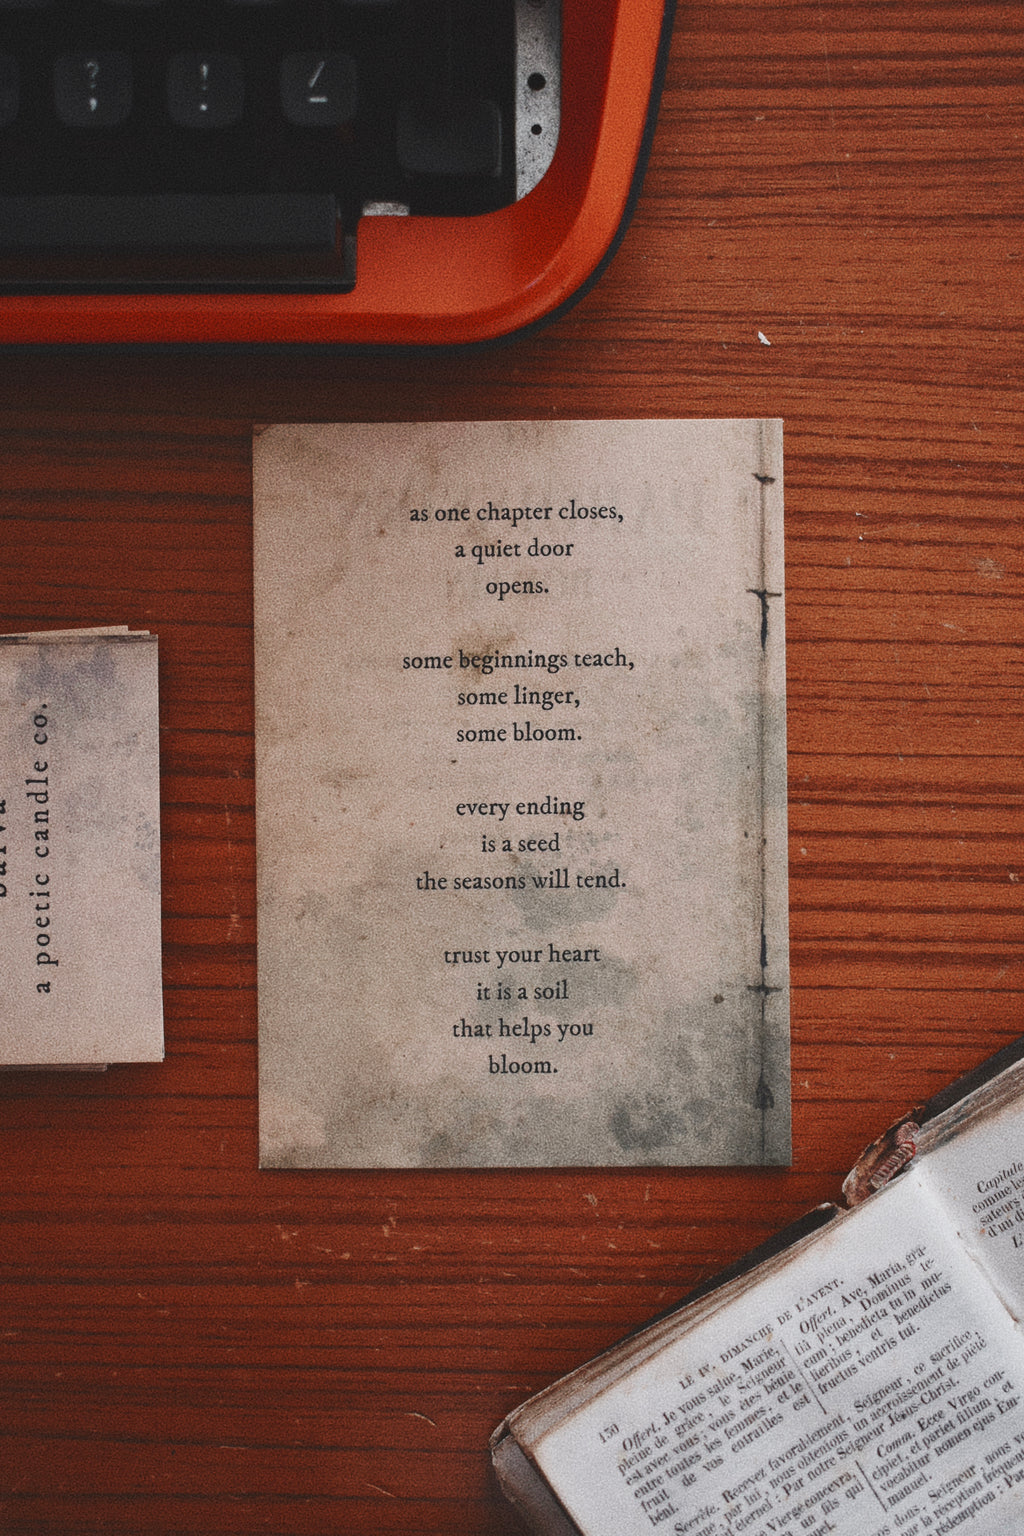 ? ! /
; . -
as one chapter closes,
a quiet door
opens.
some beginnings teach,
some linger,
some bloom.
every ending
is a seed
the seasons will tend.
trust your heart
it is a soil
that helps you
bloom.
a poetic candle co.
150
LE IVe DIMANCHE DE L'AVENT.
Offert. Je vous salue, Marie,
pleine de grâce, le Seigneur
est avec vous ; vous êtes bénie
entre toutes les femmes, et le
fruit de vos entrailles est
béni.
Offert. Ave, Maria, grâ-
tiâ plena, Dominus te-
cum ; benedicta tu in mu-
lieribus, et benedictus
fructus ventris tui.
Secrète. Recevez favorablement, Seigneur, ce sacrifice,
par lui, nous obtenions un accroissement de piété
éternel : Par notre Seigneur Jésus-Christ.
Vierge concevra,
un fils qui
Comm. Ecce Virgo con-
cipiet, et pariet filium, et
vocabitur nomen ejus Em-
manuel.
Seigneur, nous
la réception
Capitule
comme les
d'un